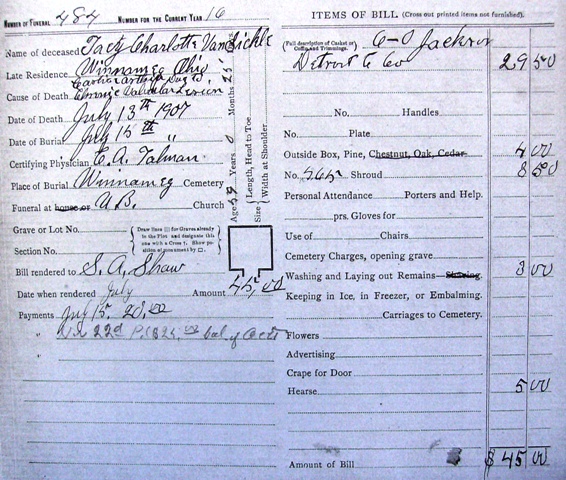 NUMBER OF FUNERAL 484 NUMBER FOR THE CURRENT YEAR 16
Name of deceased Tacy Charlotte Van Sickle
Late Residence Winnameg Ohio
Cause of Death Chronic Valvular Lesion
Date of Death July 13th 1907
Date of Burial July 15th "
Certifying Physician C. A. Talman
Place of Burial Winnameg Cemetery
Funeral at house or U.B. Church
Age 59 Years 0 Months 25
Size { Length, Head to Toe
Width at Shoulder
Grave or Lot No.
Section No.
{ Draw lines for Graves already in the Plot and designate this one with a Cross †. Show position of monument by □. }
Bill rendered to S. A. Shaw
Date when rendered July Amount 45,00
Payments July 15, 20.00
" 22d bal of acct
"
ITEMS OF BILL (Cross out printed items not furnished).
(Full description of Casket or Coffin and Trimmings. C-O Jackson
Detroit C Co 29 50
No. Handles
No. Plate
Outside Box, Pine, Chestnut, Oak, Cedar 4 00
No. 565 Shroud 8 50
Personal Attendance Porters and Help.
prs. Gloves for
Use of Chairs
Cemetery Charges, opening grave
Washing and Laying out Remains Shaving 3 00
Keeping in Ice, in Freezer, or Embalming.
Carriages to Cemetery.
Flowers
Advertising
Crape for Door
Hearse 5 00
Amount of Bill $ 45 00